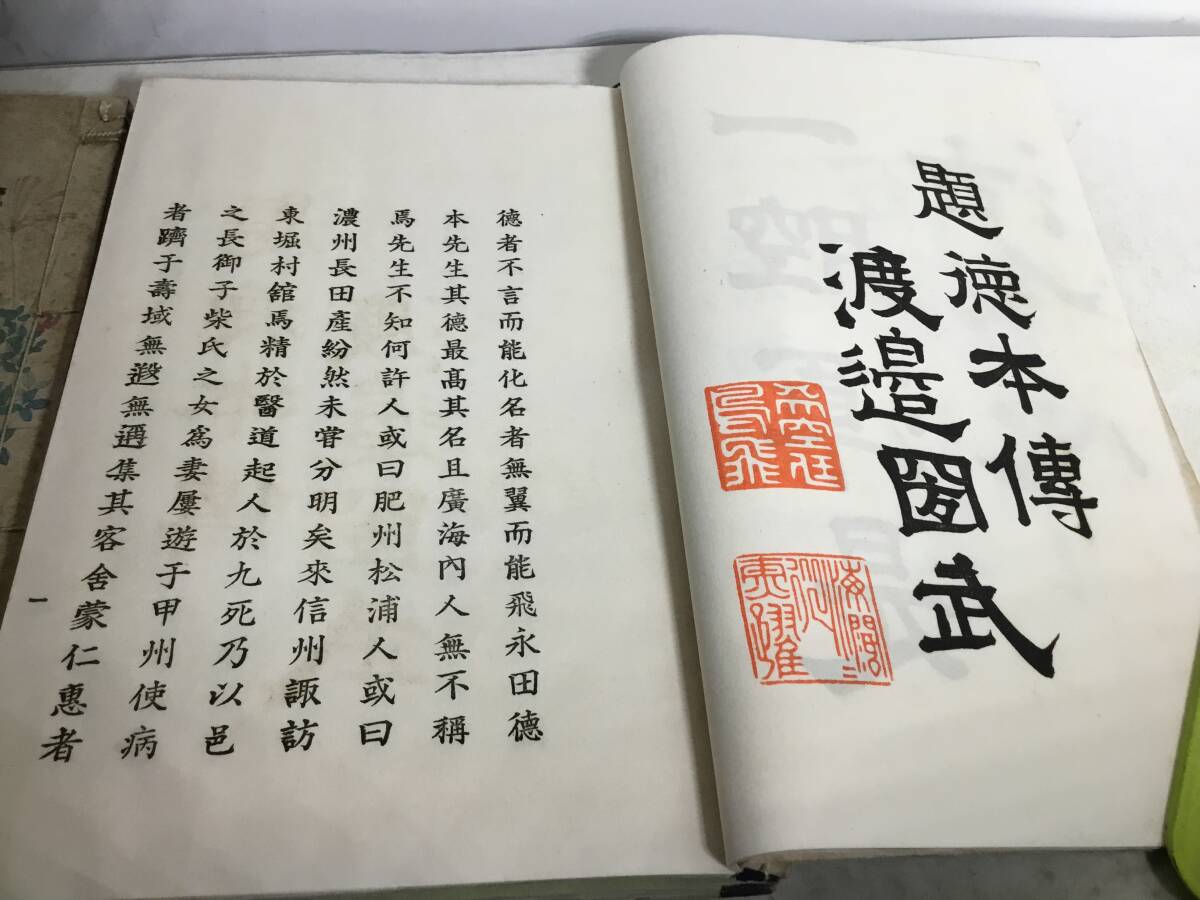 題德本傳
渡邉國武
德者不言而能化名者無翼而能飛永田德
本先生其德最高其名且廣海內人無不稱
焉先生不知何許人或曰肥州松浦人或曰
濃州長田產紛然未嘗分明矣來信州諏訪
東堀村舘焉精於醫道起人於九死乃以邑
之長御子柴氏之女爲妻屢遊于甲州使病
者躋于壽域無遐無邇集其客舍蒙仁惠者
一